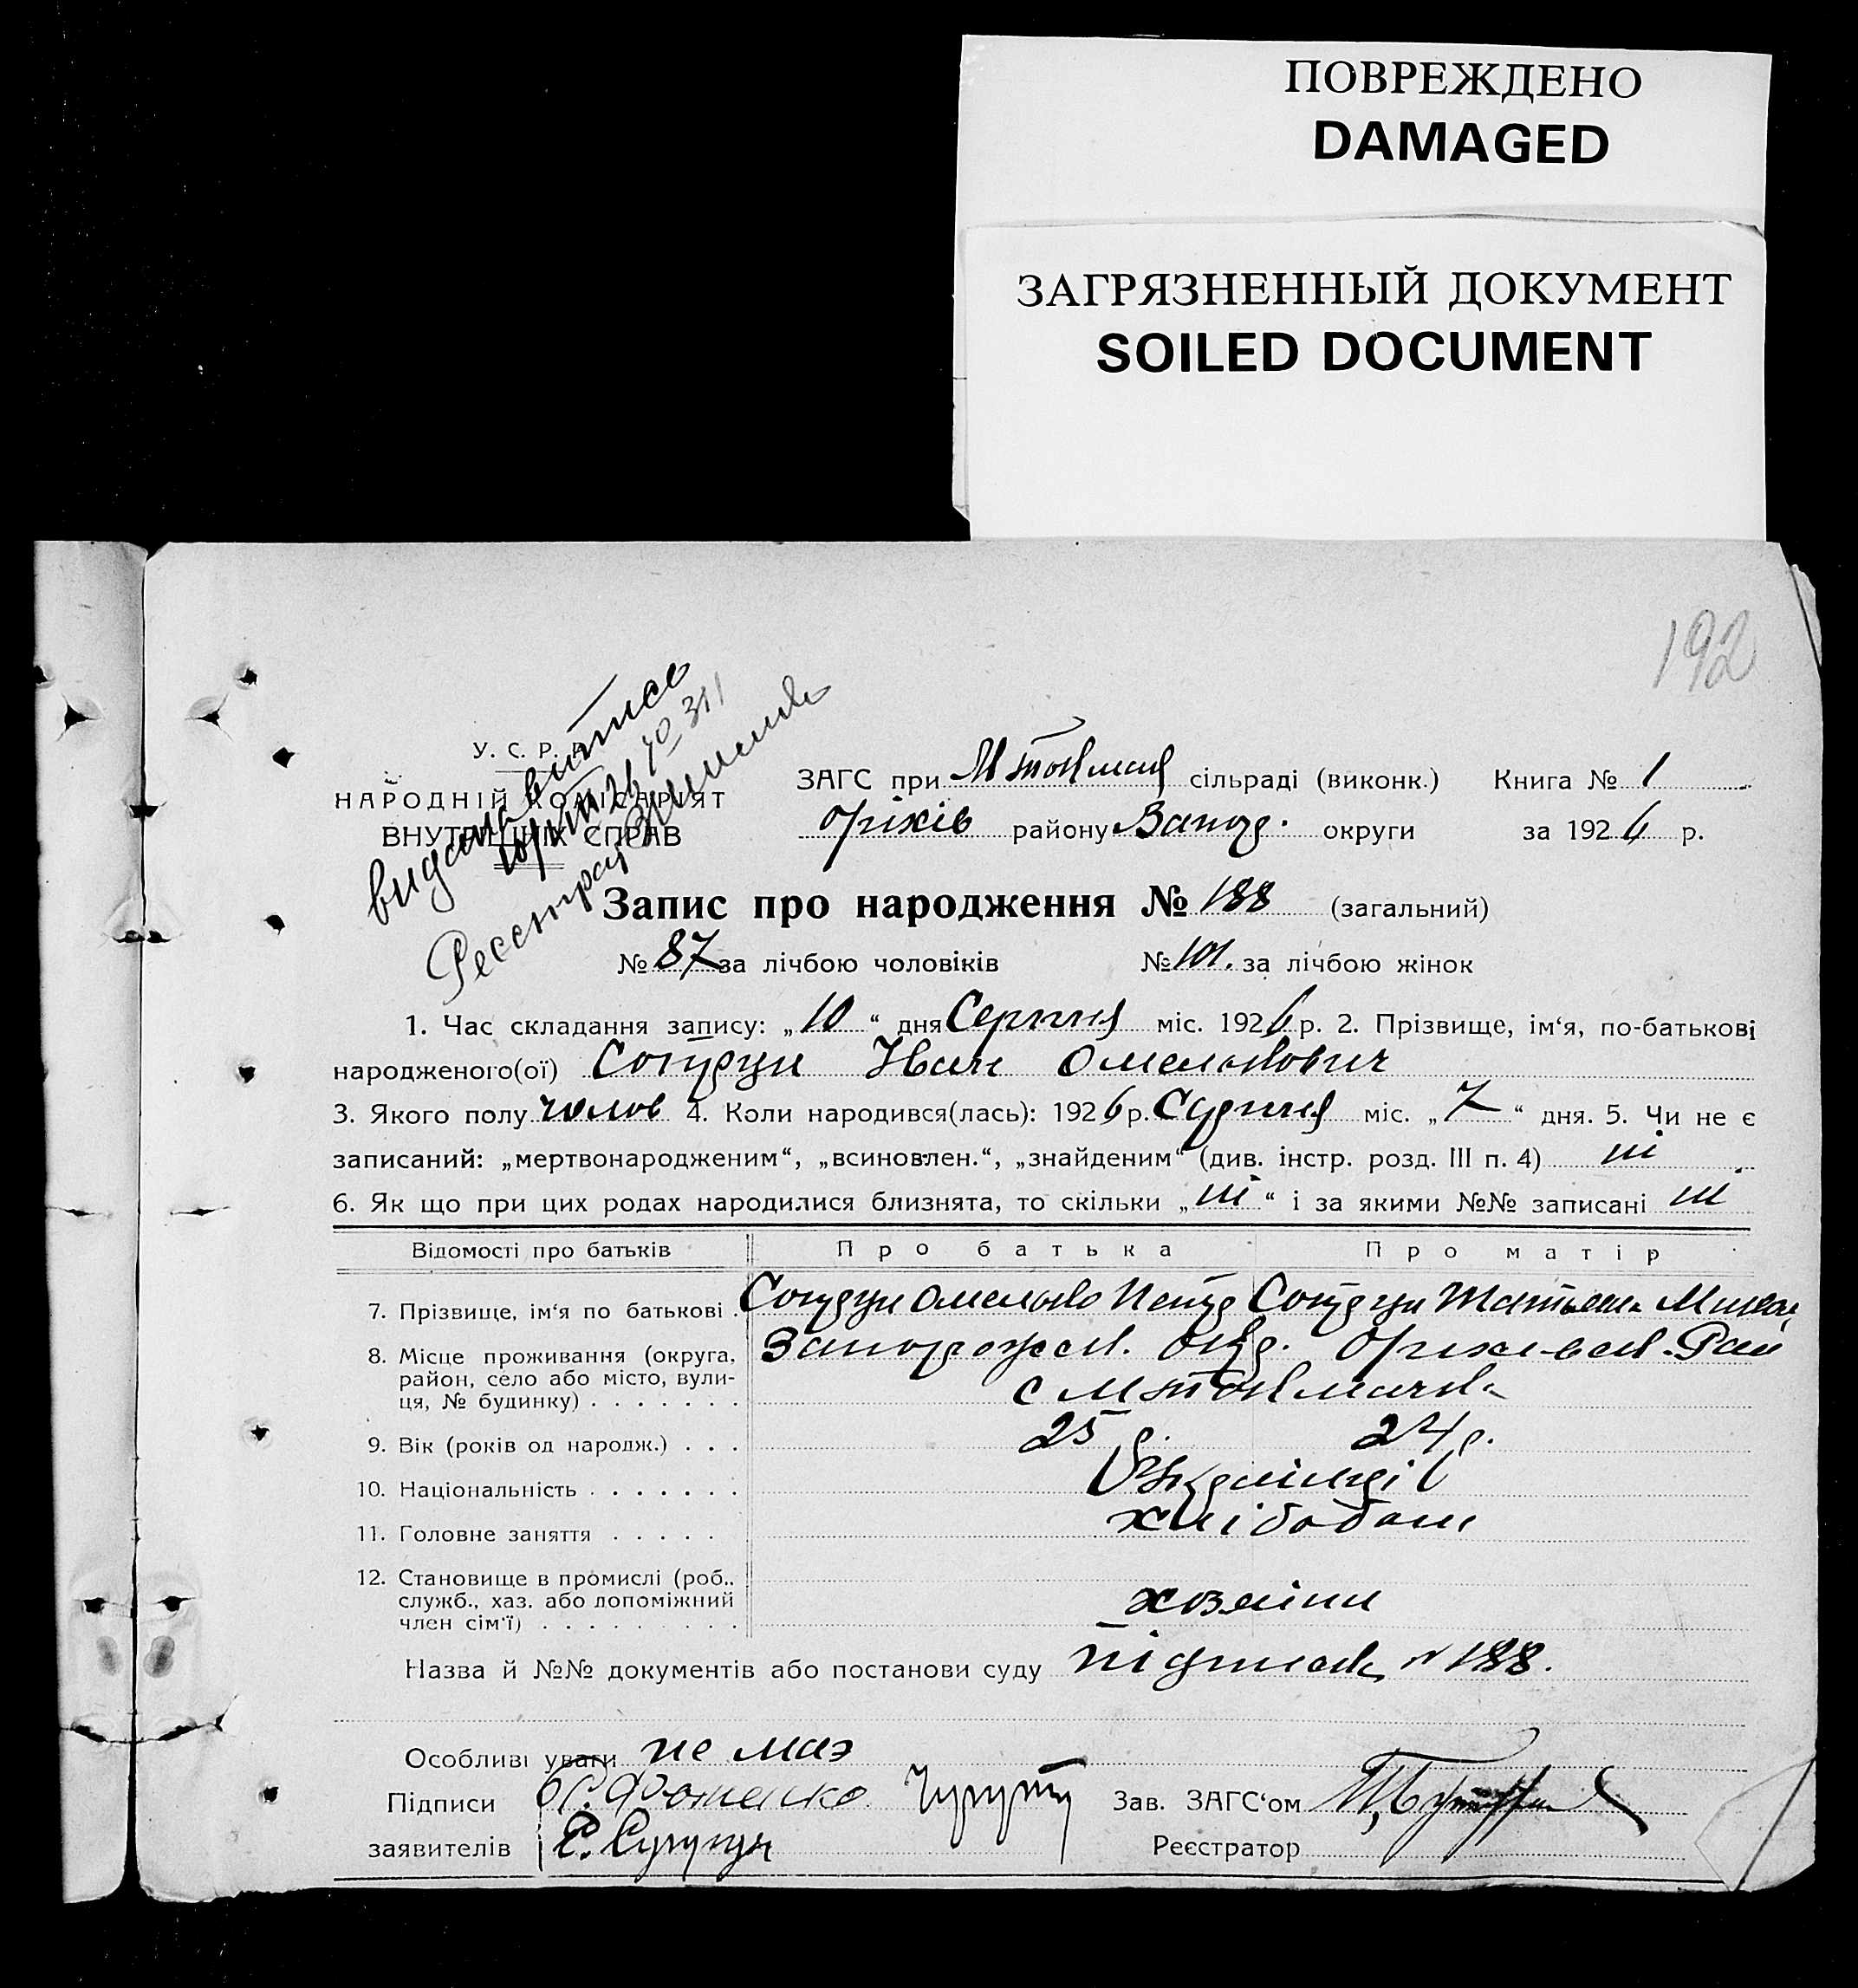 ПОВРЕЖДЕНО
DAMAGED
ЗАГРЯЗНЕННЫЙ ДОКУМЕНТ
SOILED DOCUMENT
192
видана витись
Реєстрац
У. С. Р. Р.
НАРОДНІЙ КОМІСАРІЯТ
ВНУТРІШНІХ СПРАВ
ЗАГС при М Токмац сільраді (виконк.) Книга № 1
Оріхів району Запор. округи за 1926 р.
Запис про народження № 188 (загальний)
№ 87 за лічбою чоловіків № 101. за лічбою жінок
1. Час складання запису: „10“ дня Серпня міс. 1926 р. 2. Прізвище, ім‘я, по-батькові
народженого(ої) Іван Омелькович
3. Якого полу чолов 4. Коли народився(лась): 1926 р. Серпня міс. „7“ дня. 5. Чи не є
записаний: „мертвонародженим“, „всиновлен.“, „знайденим“ (див. інстр. розд. III п. 4) ні
6. Як що при цих родах народилися близнята, то скільки „ні“ і за якими №№ записані ні
Відомості про батьків Про батька Про матір
7. Прізвище, ім‘я по батькові . Омелько Петр Татьяна Микол
8. Місце проживання (округа, Запорожск. Окр. Оріховск. Рай
район, село або місто, вули-
ця, № будинку) . . . . . . . с М Токмачка
9. Вік (років од народж.) . . . 25 р. 24 р.
10. Національність . . . . . . . Українці
11. Головне заняття . . . . . хлібороби
12. Становище в промислі (роб.,
служб., хаз. або допоміжний хозяіни
член сім‘ї) . . . . . . . . .
Назва й №№ документів або постанови суду підписка № 188.
Особливі уваги не має
Підписи Фоменко Зав. ЗАГС‘ом
заявителів Реєстратор